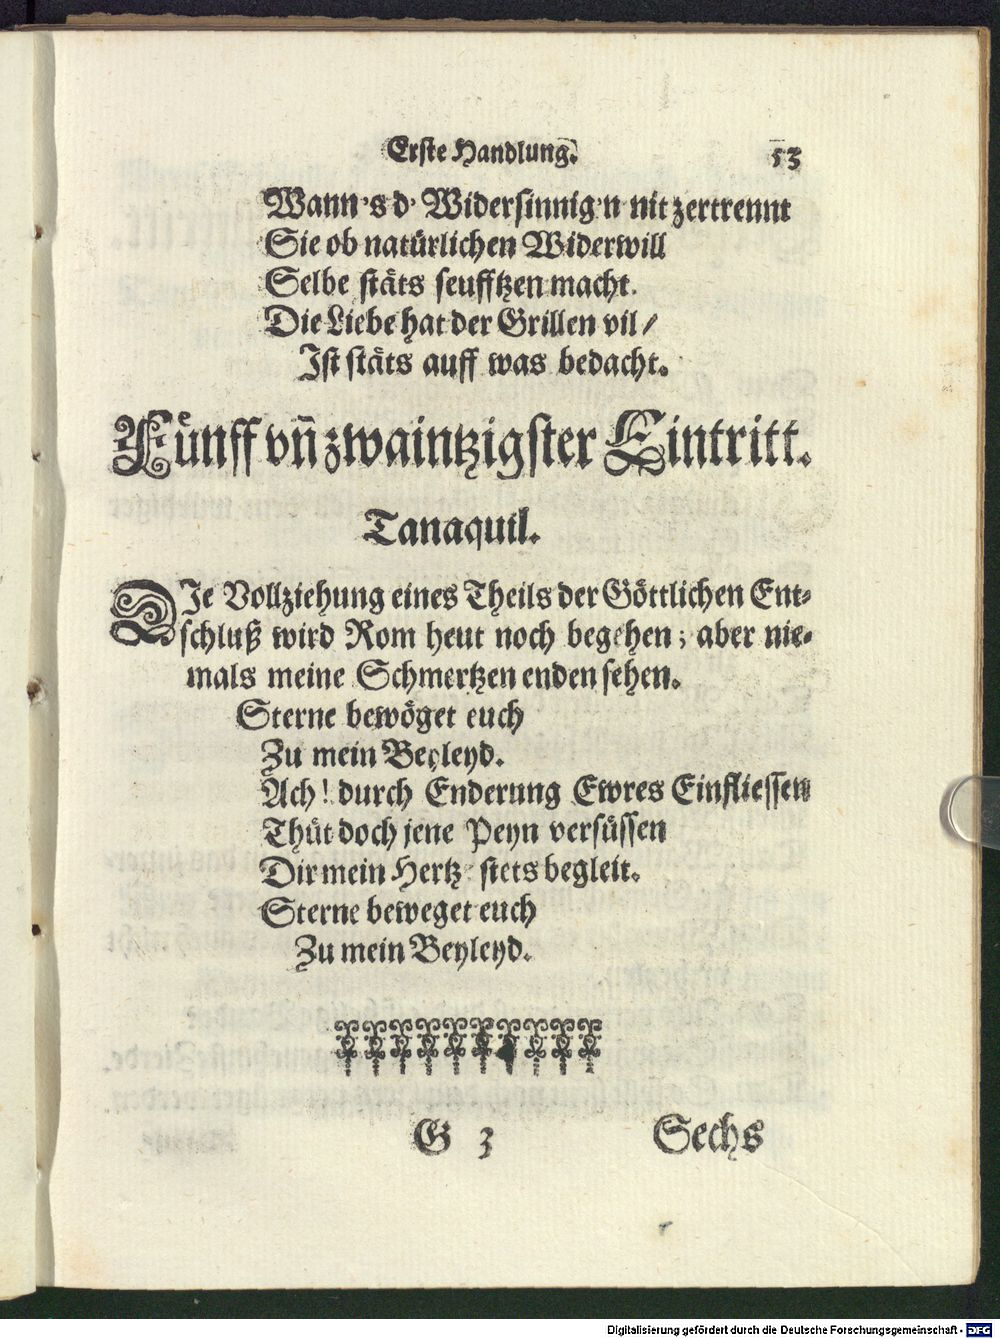 Erste Handlung. 53
Wann's d' Widersinnig'n nit zertrennt
Sie ob natürlichen Widerwill
Selbe stäts seufftzen macht.
Die Liebe hat der Grillen vil /
Ist stäts auff was bedacht.
Fünff vñ zwaintzigster Eintritt.
Tanaquil.
DIe Vollziehung eines Theils der Göttlichen Ent-
schluß wird Rom heut noch begehen; aber nie-
mals meine Schmertzen enden sehen.
Sterne bewöget euch
Zu mein Beyleyd.
Ach! durch Enderung Ewres Einfliessen
Thüt doch jene Peyn versüssen
Dir mein Hertz stets begleit.
Sterne beweget euch
Zu mein Beyleyd.
G 3 Sechs
Digitalisierung gefördert durch die Deutsche Forschungsgemeinschaft - DFG